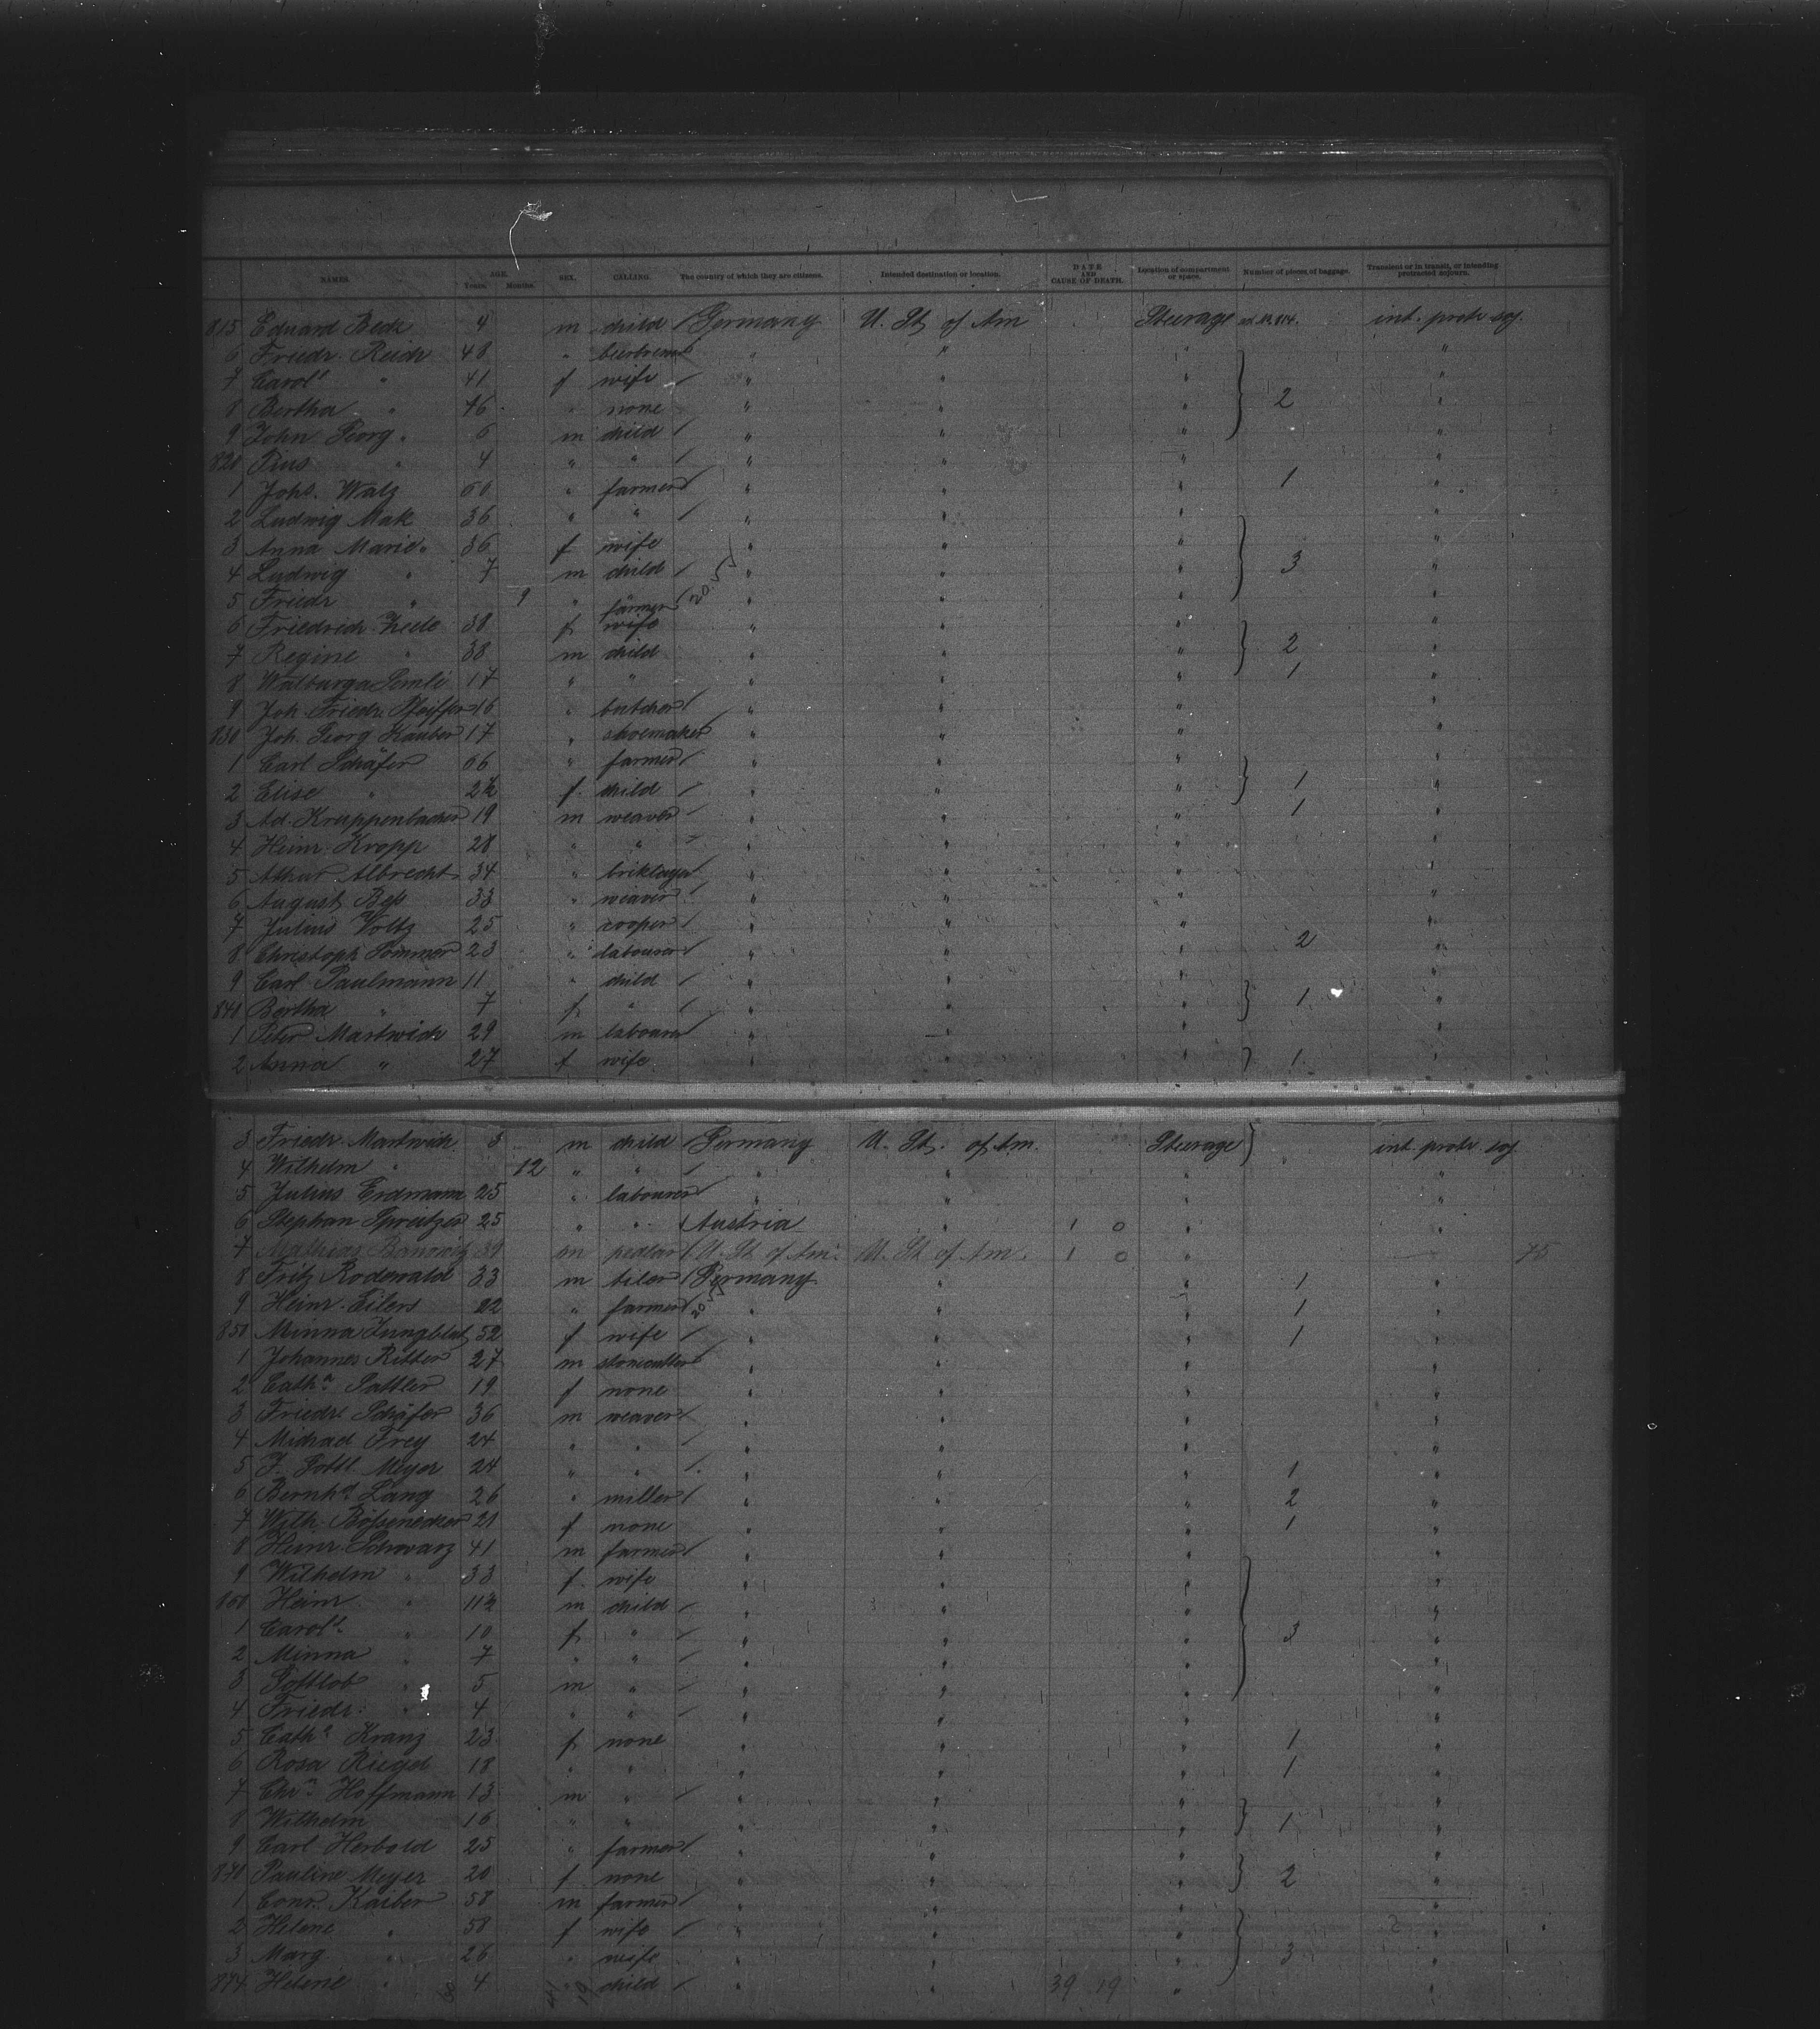 NAMES. AGE. Years. Months. SEX. CALLING. The country of which they are citizens. Intended destination or location. DATE AND CAUSE OF DEATH. Location of compartment or space. Number of pieces of baggage. Transient or in transit, or intending protracted sojourn.
815 Eduard Beck 4 m child Germany U. St of Am Steerage int. protr soj.
6 Friedr. Reich 48 " " " " "
7 Carol " 41 f wife " " " "
8 Bertha " 16 " none " " " 2 "
9 John Georg " 6 m child " " " "
820 Pius " 4 " " " " " "
1 Johs. Walz 60 " farmer " " " 1 "
2 Ludwig Mak 36 " " " " " "
3 Anna Marie " 36 f wife " " " "
4 Ludwig " 7 m child " " " 3 "
5 Friedr " 9 " " " " "
6 Friedrich 38 farmer " " " "
7 Regine " 38 f wife " " " 2 "
8 Walburga 17 m child " " " 1 "
9 Joh. Friedr. Pfeiffer 16 " butcher " " " "
830 Joh. Georg Kauber 17 " shoemaker " " " "
1 Carl Schäfer 66 " farmer " " " "
2 Elise " f child " " " 1 "
3 Ad. Kruppenbacher 19 m weaver " " " 1 "
4 Heinr. Kropp 28 " " " " " "
5 Albrecht 34 " " " " "
6 August 33 " weaver " " " "
7 Julius Voltz 25 " cooper " " " "
8 Christoph Sommer 23 " labourer " " " 2 "
9 Carl Paulmann 11 " child " " " "
840 Bertha " 7 f " " " " 1 "
1 Peter Martwich 29 m labourer " " " "
2 Anna " 27 f wife " " " 1 "
3 Friedr. Martwich 3 m child Germany U. St. of Am. Steerage int. protr soj
4 Wilhelm " " " " " " "
5 Julius Erdmann 25 " labourer " " " "
6 Stephan Spreitzer 25 " " Austria " 1 0 " "
7 Mathias 39 m pedlar U. St of Am. U. St of Am. 1 0 " 75
8 Fritz Rodewald 33 m tiler Germany " " 1 "
9 Heinr. Eilers 22 " farmer " " " 1 "
850 Minna Jungblut 52 f wife " " " 1 "
1 Johannes Ritter 27 m stonecutter " " " "
2 Catha Sattler 19 f none " " " "
3 Friedr. Schäfer 36 m weaver " " " "
4 Michael Frey 24 " " " " " "
5 J. Gottl Meyer 24 " " " " " 1 "
6 Bernhd Lang 26 " miller " " " 2 "
7 Wilh. 21 f none " " " 1 "
8 Heinr. Schwarz 41 m farmer " " " "
9 Wilhelm " 33 f wife " " " "
860 Heinr " m child " " " "
1 Carol " 10 f " " " " 3 "
2 Minna " 7 " " " " " "
3 Gottlob " 5 m " " " " "
4 Friedr. " 4 " " " " " "
5 Catha Kranz 23 f none " " " 1 "
6 Rosa Riegel 18 " " " " " 1 "
7 Chrn Hoffmann 13 m " " " " "
8 Wilhelm 16 " " " " " 1 "
9 Carl Herbold 25 " farmer " " " "
870 Pauline Meyer 20 f none " " " 2 "
1 Conr. Kaiber 58 m farmer " " " "
2 Helene " 58 f wife " " " "
3 Marg " 26 " wife " " " 3 "
874 Helene " 4 " child " " 39 19 " "